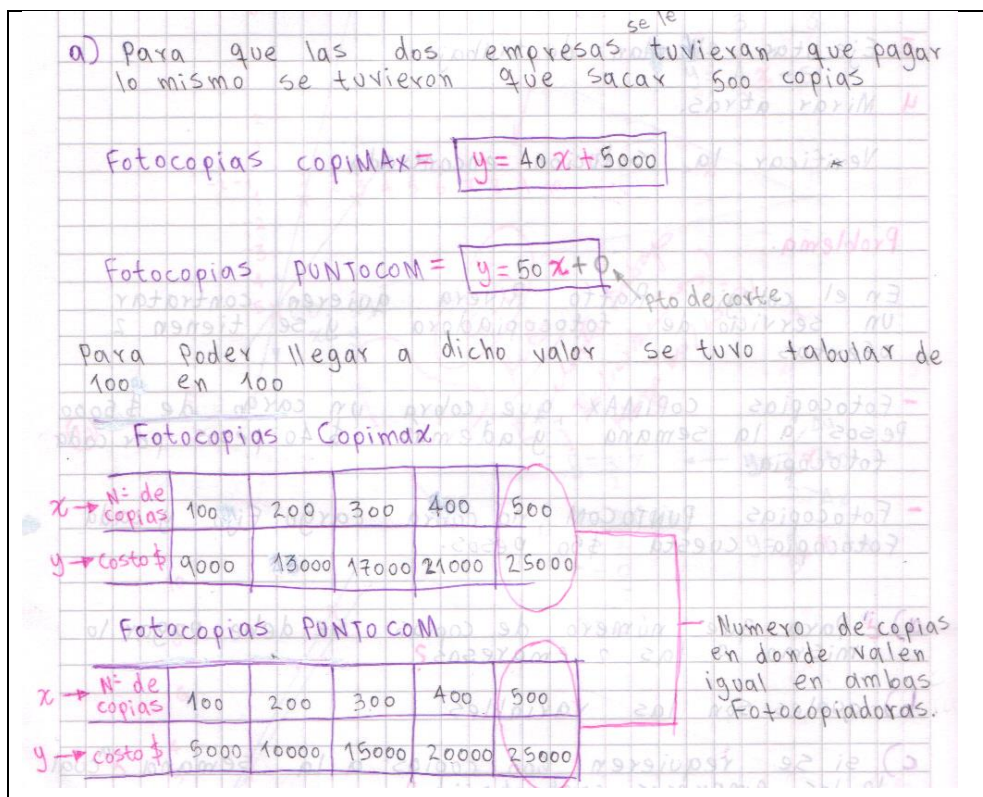 se le
a) Para que las dos empresas tuvieran que pagar
lo mismo se tuvieron que sacar 500 copias
Fotocopias copiMAx = y = 40x + 5000
Fotocopias PUNTOCOM = y = 50x + 0
pto de corte
Para Poder llegar a dicho valor se tuvo tabular de
100 en 100
Fotocopias Copimax
x → Nº de copias 100 200 300 400 500
y → costo $ 9000 13000 17000 21000 25000
Fotocopias PUNTO COM
x → Nº de copias 100 200 300 400 500
y → costo $ 5000 10000 15000 20000 25000
Numero de copias
en donde valen
igual en ambas
Fotocopiadoras.